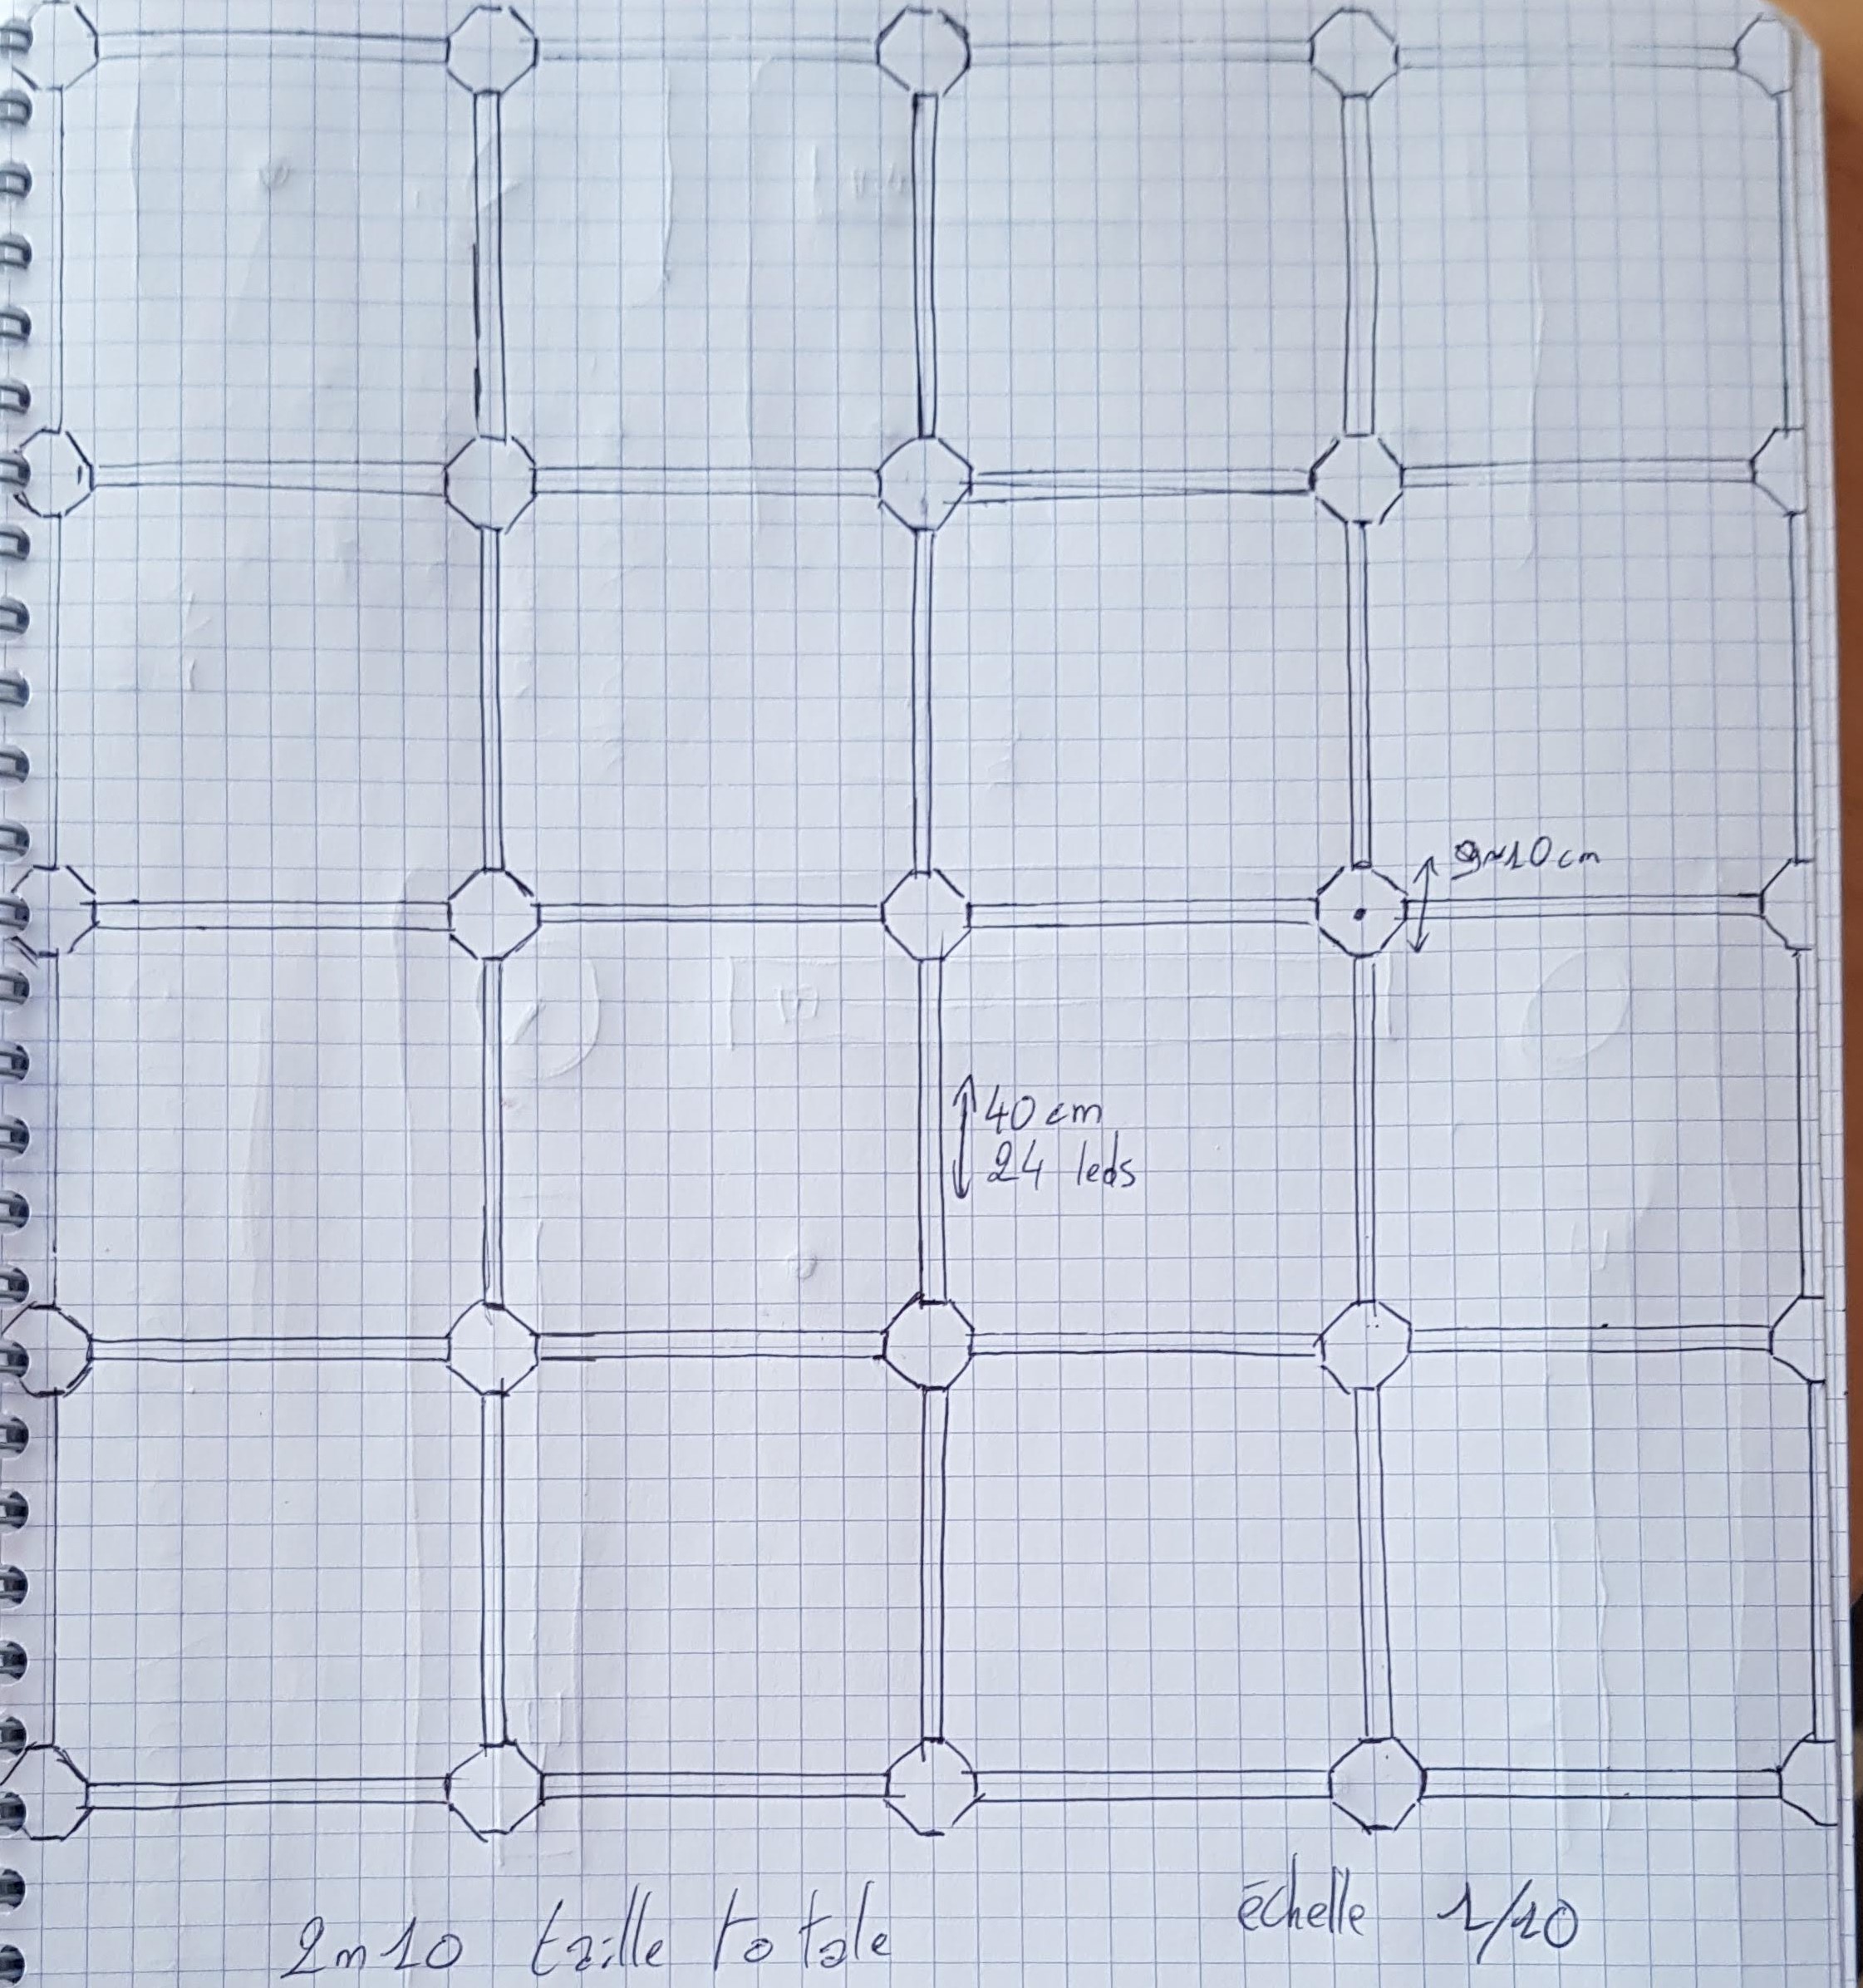 9~10cm
40cm
24 leds
2m10 taille totale
échelle 1/10